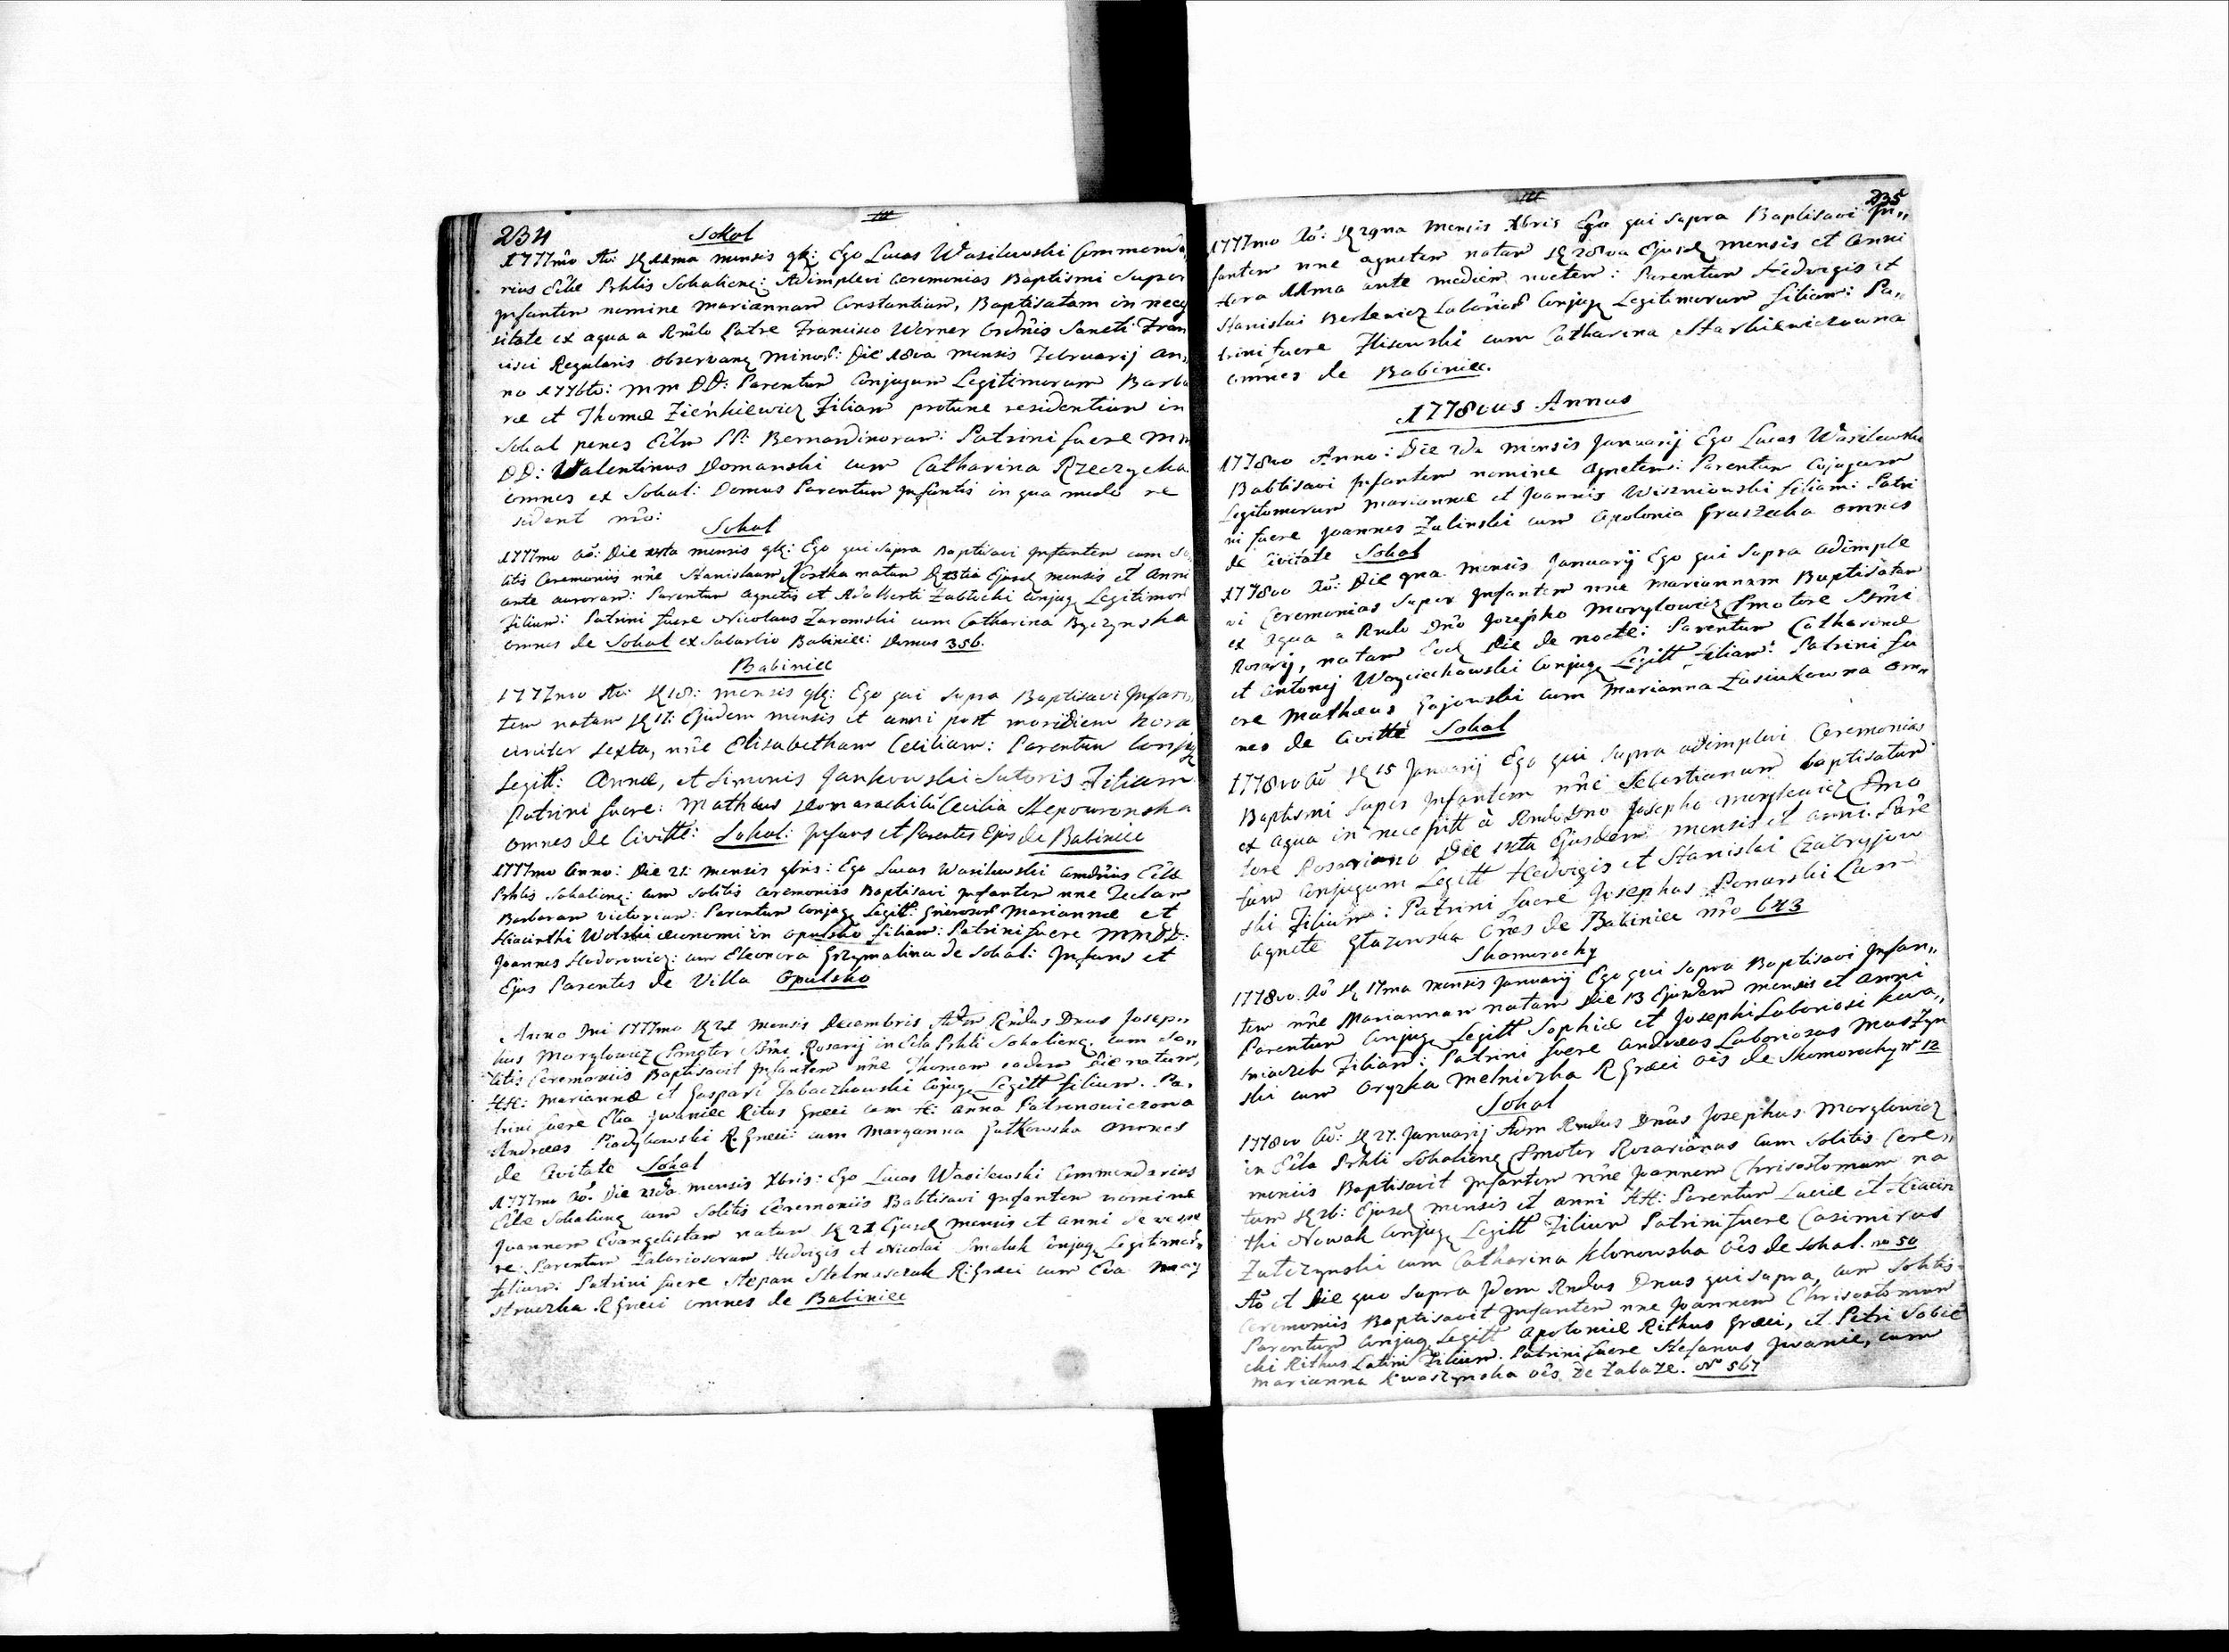 234 Sokal
1777mo Ao: D 11ma mensis 9bris: Ego Lucas Wasilewski Commenda
rius Ecclae Prhlis Sokalieng: Adimplevi Ceremonias Baptismi super
Infantem nomine Mariannam Constantiam, Baptisatam in nece
sitate ex aqua a Rndo Patre Francisco Werner Ordinis Sancti Fran
cisci Regularis observang Minor: Die 18va mensis Februarij An,,
no 1776to: MM DD: Parentum Conjugum Legitimorum Barba
rae et Thomae Zieńkiewicz Filiam protunc residentium in
Sokal penes Eccla PP: Bernardinorum: Patrini fuere MM
DD: Walentinus Domanski cum Catharina Rzeczycka
omnes ex Sokal: Domus Parentum Infantis in qua modo re
sident nro:
Sokal
1777mo Ao: Die 14ta mensis 9b: Ego qui supra Baptisavi Infantem cum so
litis Ceremoniis nne Stanislaum Kostka natum D 13tia Ejusd mensis et Anni
ante auroram: Parentum Agnetis et Adalberti Zablocki Conjug Legitimor
Filium: Patrini fuere Nicolaus Zaromski cum Catharina Byczynska
omnes de Sokal ex Suburbio Babiniec: Domus 356.
Babiniec
1777mo Ao: D 18: mensis 9b: Ego qui supra Baptisavi Infan,,
tem natam D 17: Ejusdem mensis et anni post meridiem hora
circiter sexta, nne Elisabetham Ceciliam: Parentum Conjug
Legitt: Annae, et Simonis Jankowski Sutoris Filiam
Patrini fuere: Mathaus Domaracki cu Cecilia Steporowska
omnes de Civitte: Sokal: Infans et Parentes Ejus de Babiniec
1777mo Anno: Die 21: mensis 9bris: Ego Lucas Wasilewski Comdrius Eccle
Prhlis Sokalieng: cum solitis ceremoniis Baptisavi Infantem nne Teclam
Barbaram Victoriam: Parentum Conjug Legitt: Generosor Mariannae et
Hiacinthi Wolski œconomi in Opulsko filiam: Patrini fuere MMDD:
Joannes Hodorowicz: cum Eleonora Grzymalina de Sokal: Infans et
Ejus Parentes de Villa Opulsko
Anno Dni 1777mo D 21 mensis Decembris Adm Rndus Dnus Josep,,
hus Morylowicz Pmotor SSmi Rosarij in Eccla Prhli Sokalieng. cum so,,
litis Ceremoniis Baptisavit Infantem nne Thomam eadem die natum,
HH: Mariannae et Gaspari Tabaczkowski Cojug Legitt filium. Pa,,
trini fuere Elia Iwaniec Ritus Graeci cum H: Anna Patrinowiczowa
Andreas Piadykowski R. Graeci: cum Maryanna Gutkowska omnes
de Civitate Sokal
1777mo Ao: Die 22da mensis Xbris: Ego Lucas Wasilewski Commendarius
Eccle Sokalieng cum solitis Ceremoniis Babtisavi Infantem nomine
Joannem Evangelistam natum D 21 Ejusd mensis et anni de vespe
re: Parentum Laboriosorum Hedvigis et Nicolai Smaluk Conjug Legitimor,,
filium: Patrini fuere Stepan Stelmaszczuk R: Graeci cum Eva May
struczka R Graeci omnes de Babiniec
235
1777mo Ao: D 29na mensis Xbris Ego qui supra Baptisavi In,,
fantem nne Agnetem natam D 28va Ejusd mensis et Anni
Hora 11ma ante mediam noctem: Parentum Hedvigis et
Stanislai Berkewicz Laborios Conjug Legitimorum filiam: Pa,,
trini fuere Ilisowski cum Catharina Starkiewiczowna
omnes de Babiniec.
1778vus Annus
1778vo Anno: Die 2da mensis Januarij Ego Lucas Wasilewski
Babtisavi Infantem nomine Agnetem: Parentum Cojugum
Legitomorum Mariannae et Joannis Wiszniowski filiam: Patri
ni fuere Joannes Zulinski cum Apolonia Gruszecka omnes
de Civitate Sokal
1778vo Ao: Die 9na mensis Januarij Ego qui supra adimple
vi Ceremonias super Infantem nne Mariannam Baptisatam
ex aqua a Rndo Dno Josepho Morylowicz Pmotore SSmi
Rosarij, natam Eod Die de nocte: Parentum Catharinae
et Antonij Woyciechowski Conjug Legitt filiam: Patrini fu
ere Mathaus Gajowski cum Marianna Łasiukowna om,,
nes de Civitte Sokal
1778vo Ao D 15 Januarij Ego qui supra adimplevi Ceremonias
Baptismi super Infantem nne Sebastianum baptisatum
ex aqua in necessitt à Rndo Dno Josepho Morylewicz Pmo
tore Rosariano Die 14ta Ejusdem mensis et anni. Pare
tum Conjugum Legitt Hedvigis et Stanislai Czabryjow
ski Filium: Patrini fuere Josephus Ponarski cum
Agnete Głazowska Oes de Babiniec nro 643
Skomorochy
1778vo. Ao D 17ma mensis Januarij Ego qui supra Baptisavi Infan,,
tem nne Mariannam natam Die 13 Ejusdem mensis et anni
Parentum Conjug Legitt Sophiae et Josephi Laboriosi Kwa,,
śniaczek Filiam: Patrini fuere Andreas Laboriosus Muszyn
ski cum Oryzka Melniczka R Graeci oes de Skomorochy nr 12
Sokal
1778vo Ao: D 27. Januarij Adm Rndus Dnus Josephus Morylowicz
in Eccla Prhli Sokalieng Pmotor Rozarianus cum solitis Cere,,
moniis Baptisavit Infantem nne Joannem Chrisostomum na
tum D 26: Ejusd mensis et anni HH: Parentum Luciae et Hiacin
thi Nowak Conjug Legitt Filium Patrini fuere Casimirus
Zulczynski cum Catharina Klonowska Oes de Sokal. no 50
Ao et Die quo supra Idem Rndus Dnus qui supra, cum solitis
Ceremoniis Baptisavit Infantem nne Joannem Chrisostomum
Parentum Conjug Legitt Apoloniae Rithus Graeci, et Petri Sobie
cki Rithus Latini Filium. Patrini fuere Stefanus Iwanie, cum
Marianna Kwaszynska oes de Zabuze. No 567